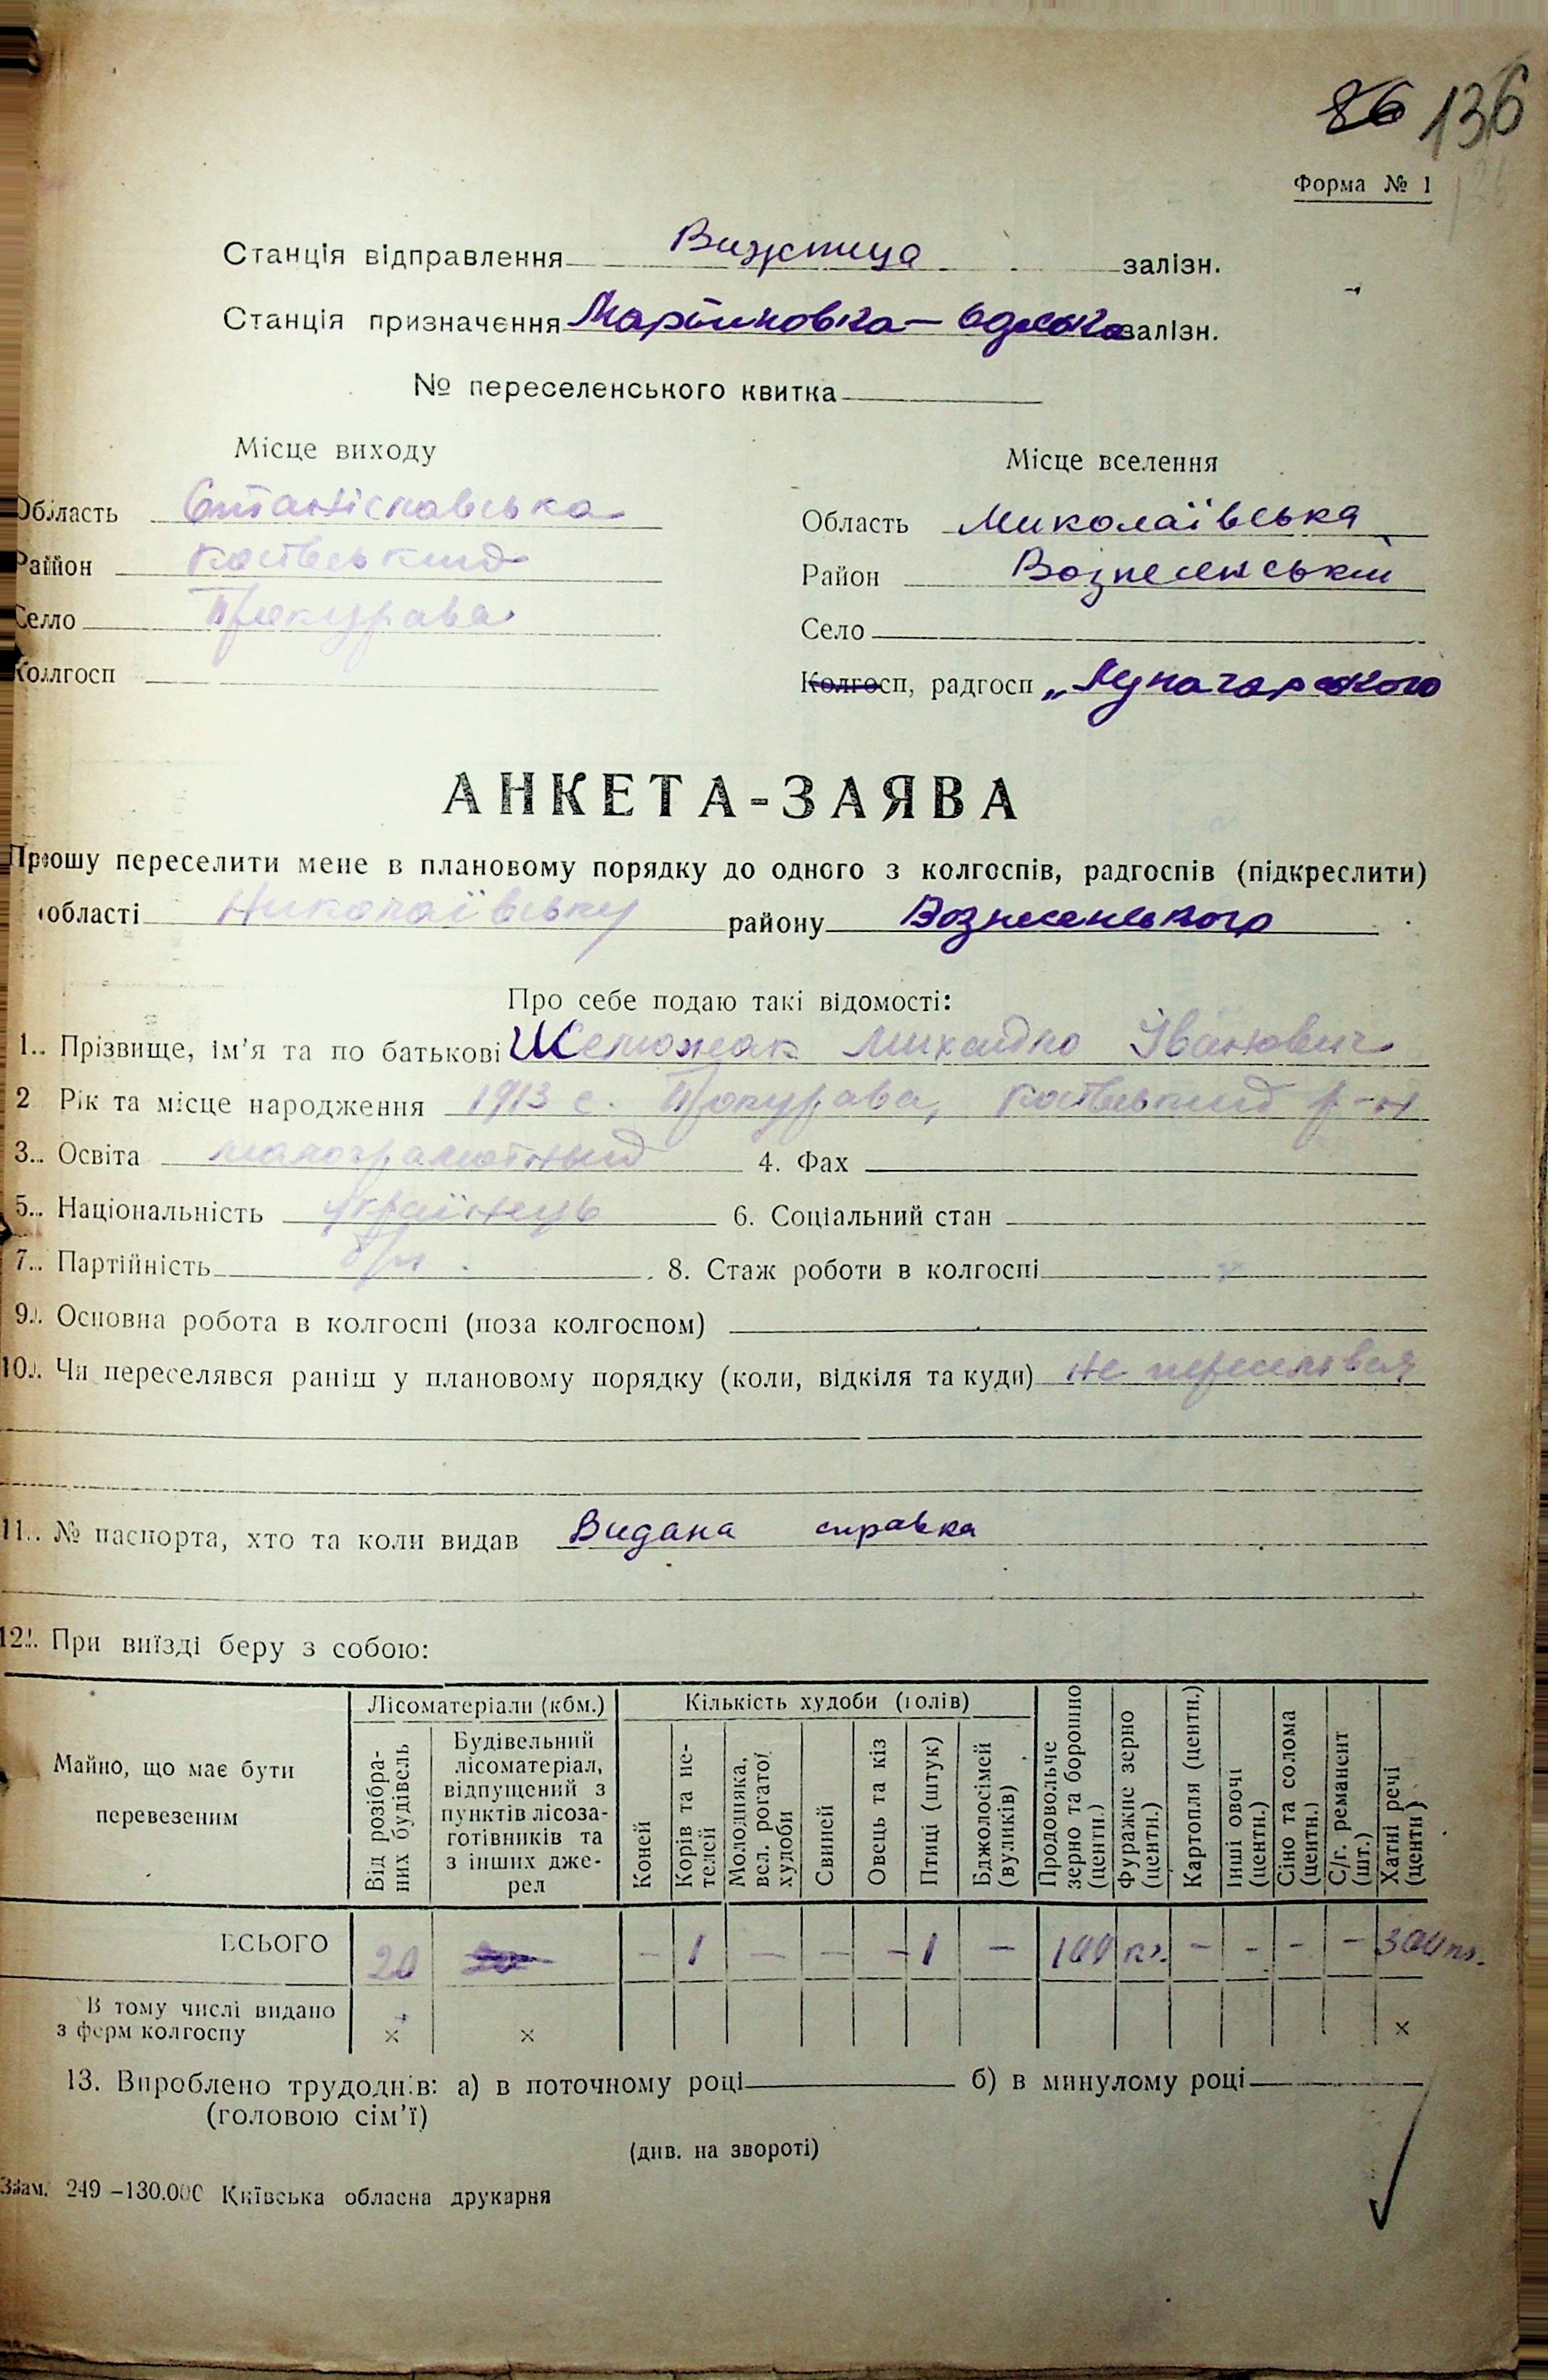 86 136
Форма № 1
Станція відправлення Вижница залізн.
Станція призначення Мартиновка – Одеська залізн.
№ переселенського квитка
Місце виходу
Місце вселення
Область Станіславська
Область Миколаївська
Район Косівський
Район Вознесенський
Село Прокурава
Село
Колгосп
Колгосп, радгосп „Луначарского
АНКЕТА-ЗАЯВА
Прошу переселити мене в плановому порядку до одного з колгоспів, радгоспів (підкреслити)
області Николаївську району Вознесенського
Про себе подаю такі відомості:
1. Прізвище, ім'я та по батькові Михайло Іванович
2 Рік та місце народження 1913 с. Прокурава, Косівський р-н
3. Освіта малограмотный 4. Фах
5. Національність українець 6. Соціальний стан
7. Партійність б/п 8. Стаж роботи в колгоспі
9. Основна робота в колгоспі (поза колгоспом)
10. Чи переселявся раніш у плановому порядку (коли, відкіля та куди) не переселявся
11. № паспорта, хто та коли видав Видана справка
12. При виїзді беру з собою:
Майно, що має бути перевезеним
Лісоматеріали (кбм.)
Від розібраних будівель
Будівельний лісоматеріал, відпущений з пунктів лісозаготівників та з інших джерел
Кількість худоби (голів)
Коней
Корів та нетелей
Молодняка, вел. рогатої худоби
Свиней
Овець та кіз
Птиці (штук)
Бджолосімей (вуликів)
Продовольче зерно та борошно (центн.)
Фуражне зерно (центн.)
Картопля (центн.)
Інші овочі (центн.)
Сіно та солома (центн.)
С/г. реманент (шт.)
Хатні речі (центн)
ВСЬОГО 20 – 1 – – – 1 – 100 кг. – – – – 300 кг.
В тому числі видано з ферм колгоспу × × ×
13. Вироблено трудоднів: а) в поточному році б) в минулому році
(головою сім'ї)
(див. на звороті)
Зам. 249–130.000 Київська обласна друкарня